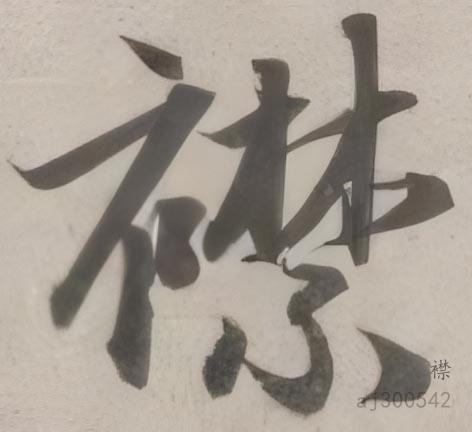 襟
襟
aj300542